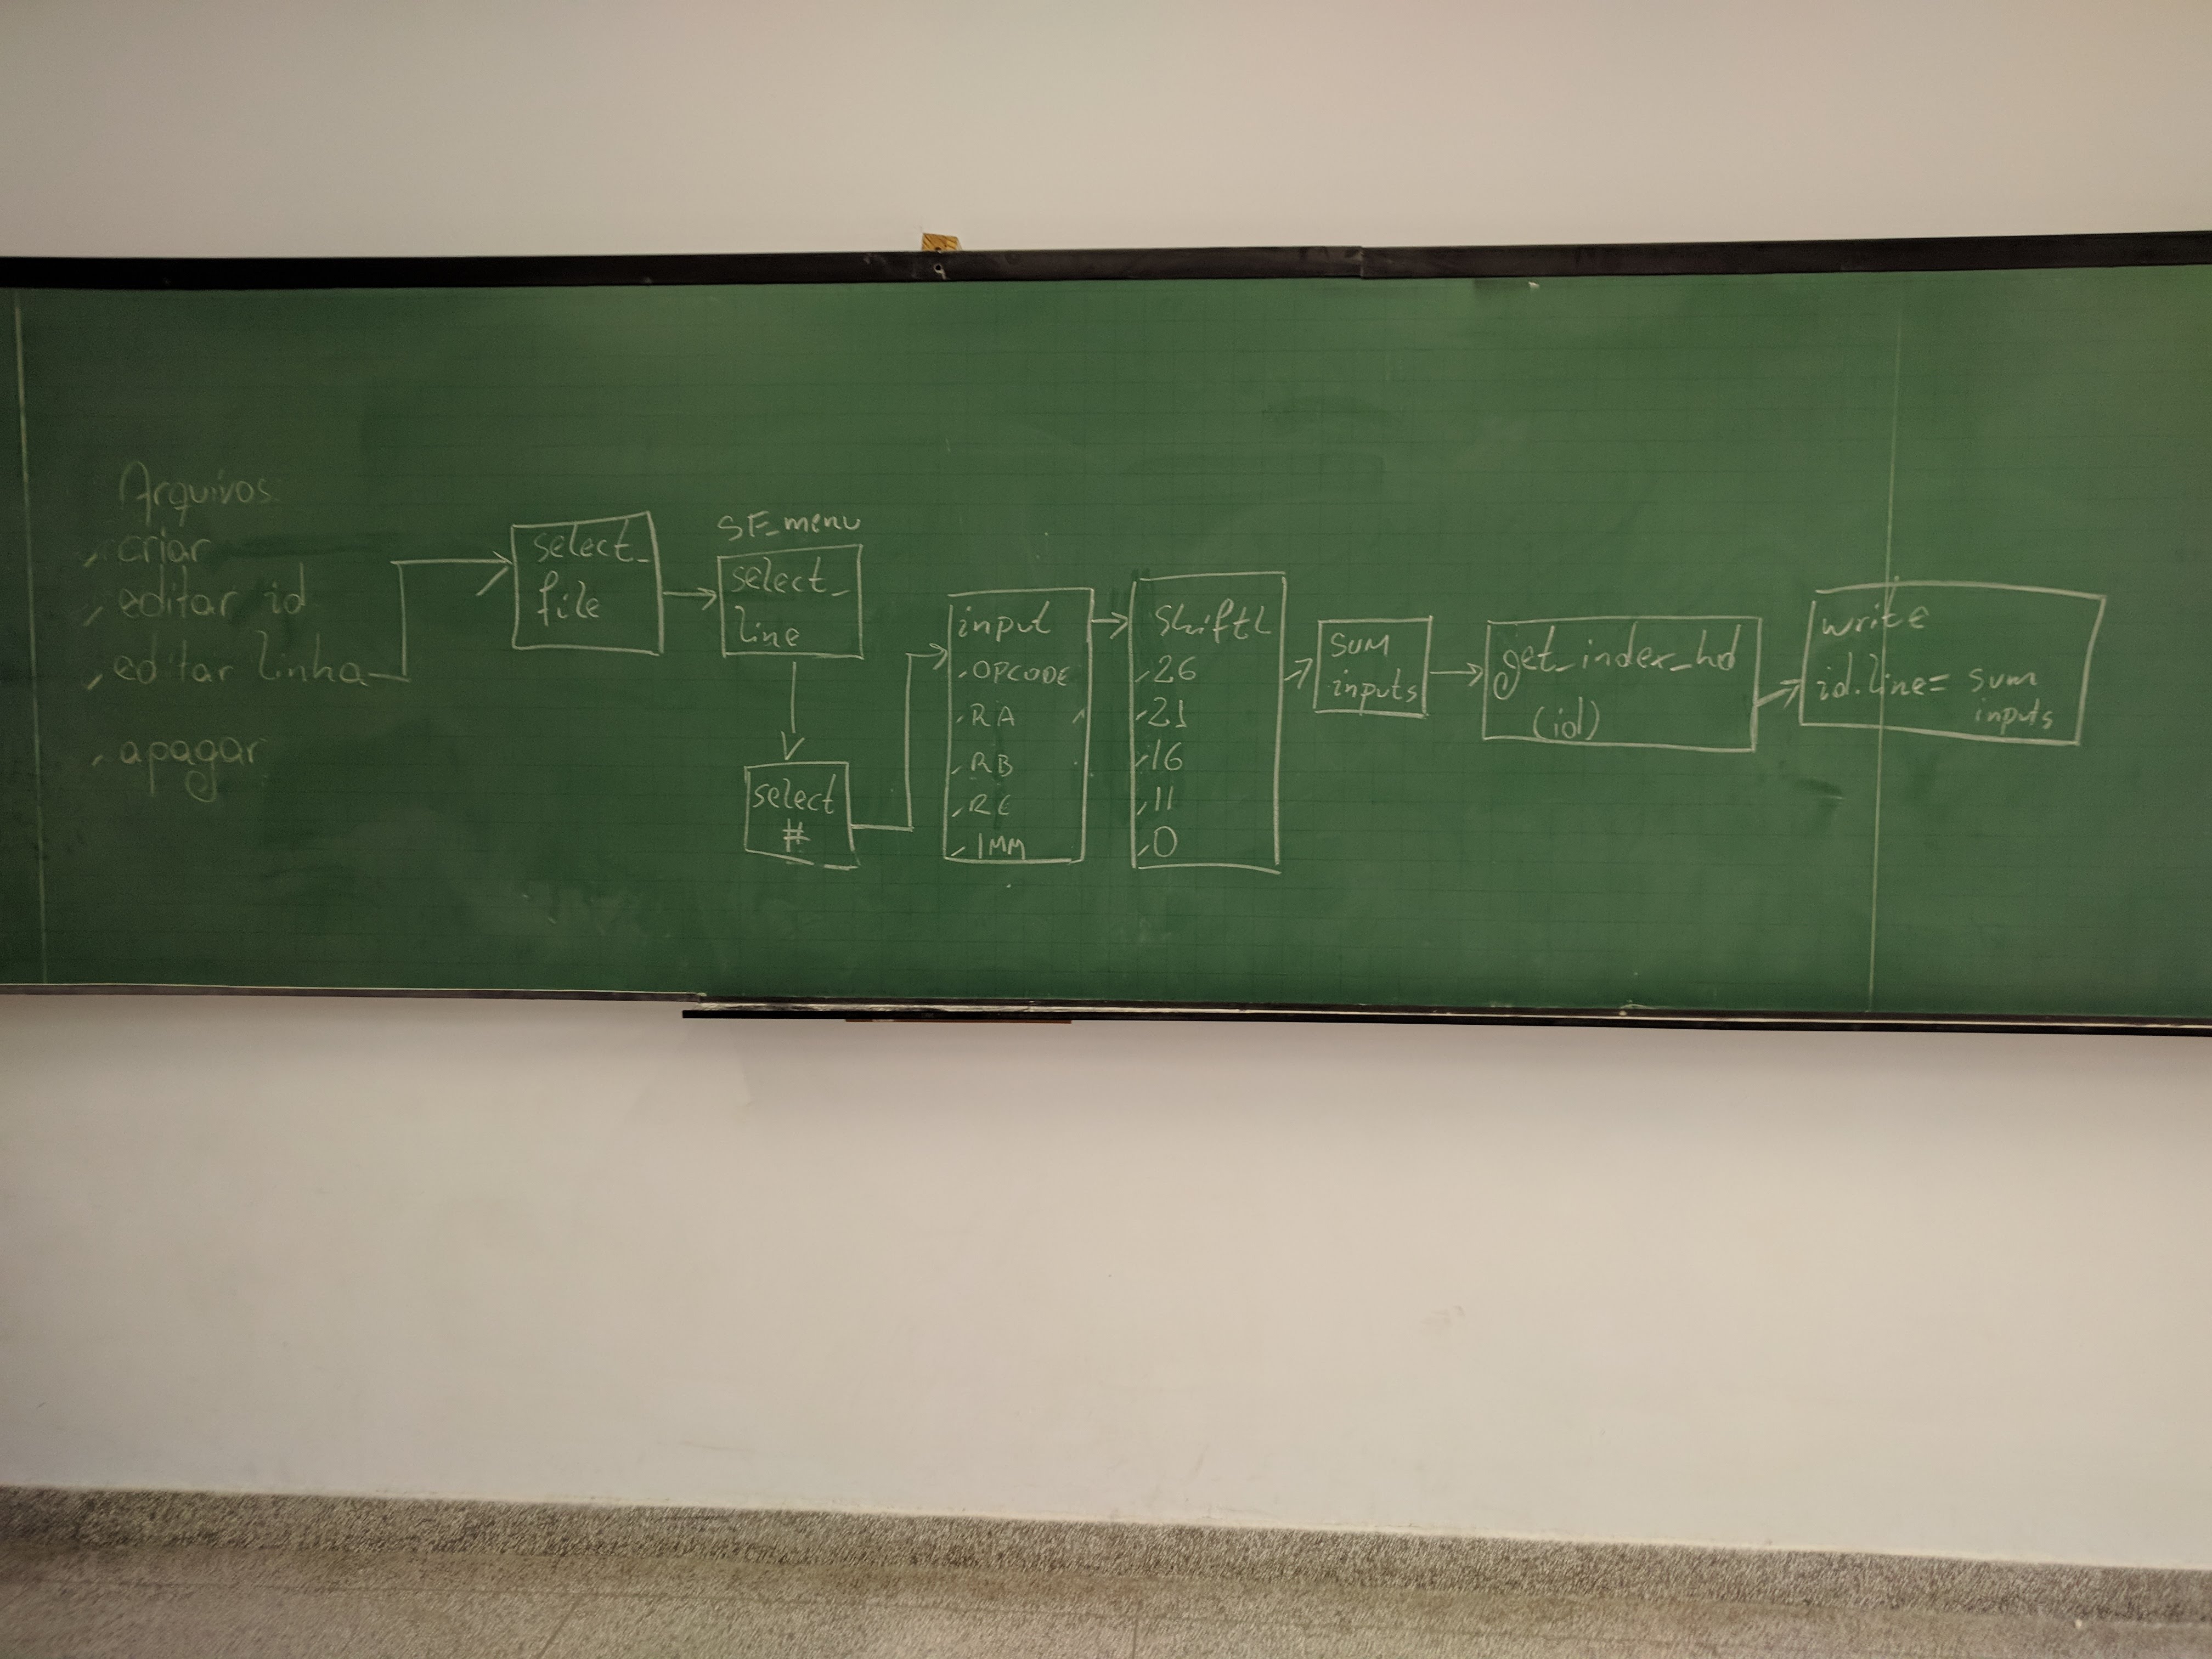 Arquivos:
, criar
, editar id
, editar linha
, apagar
select_
file
SF_menu
select_
line
select
#
input
, OPCODE
, RA
, RB
, RC
, IMM
ShiftL
, 26
, 21
, 16
, 11
, 0
sum
inputs
get_index_hd
(id)
write
id.line= sum
inputs